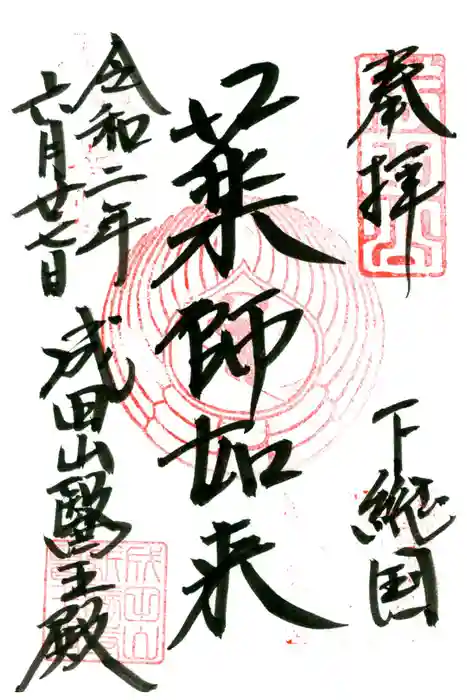 奉拝
下総国
薬師如来
令和二年
六月廿七日
成田山醫王殿